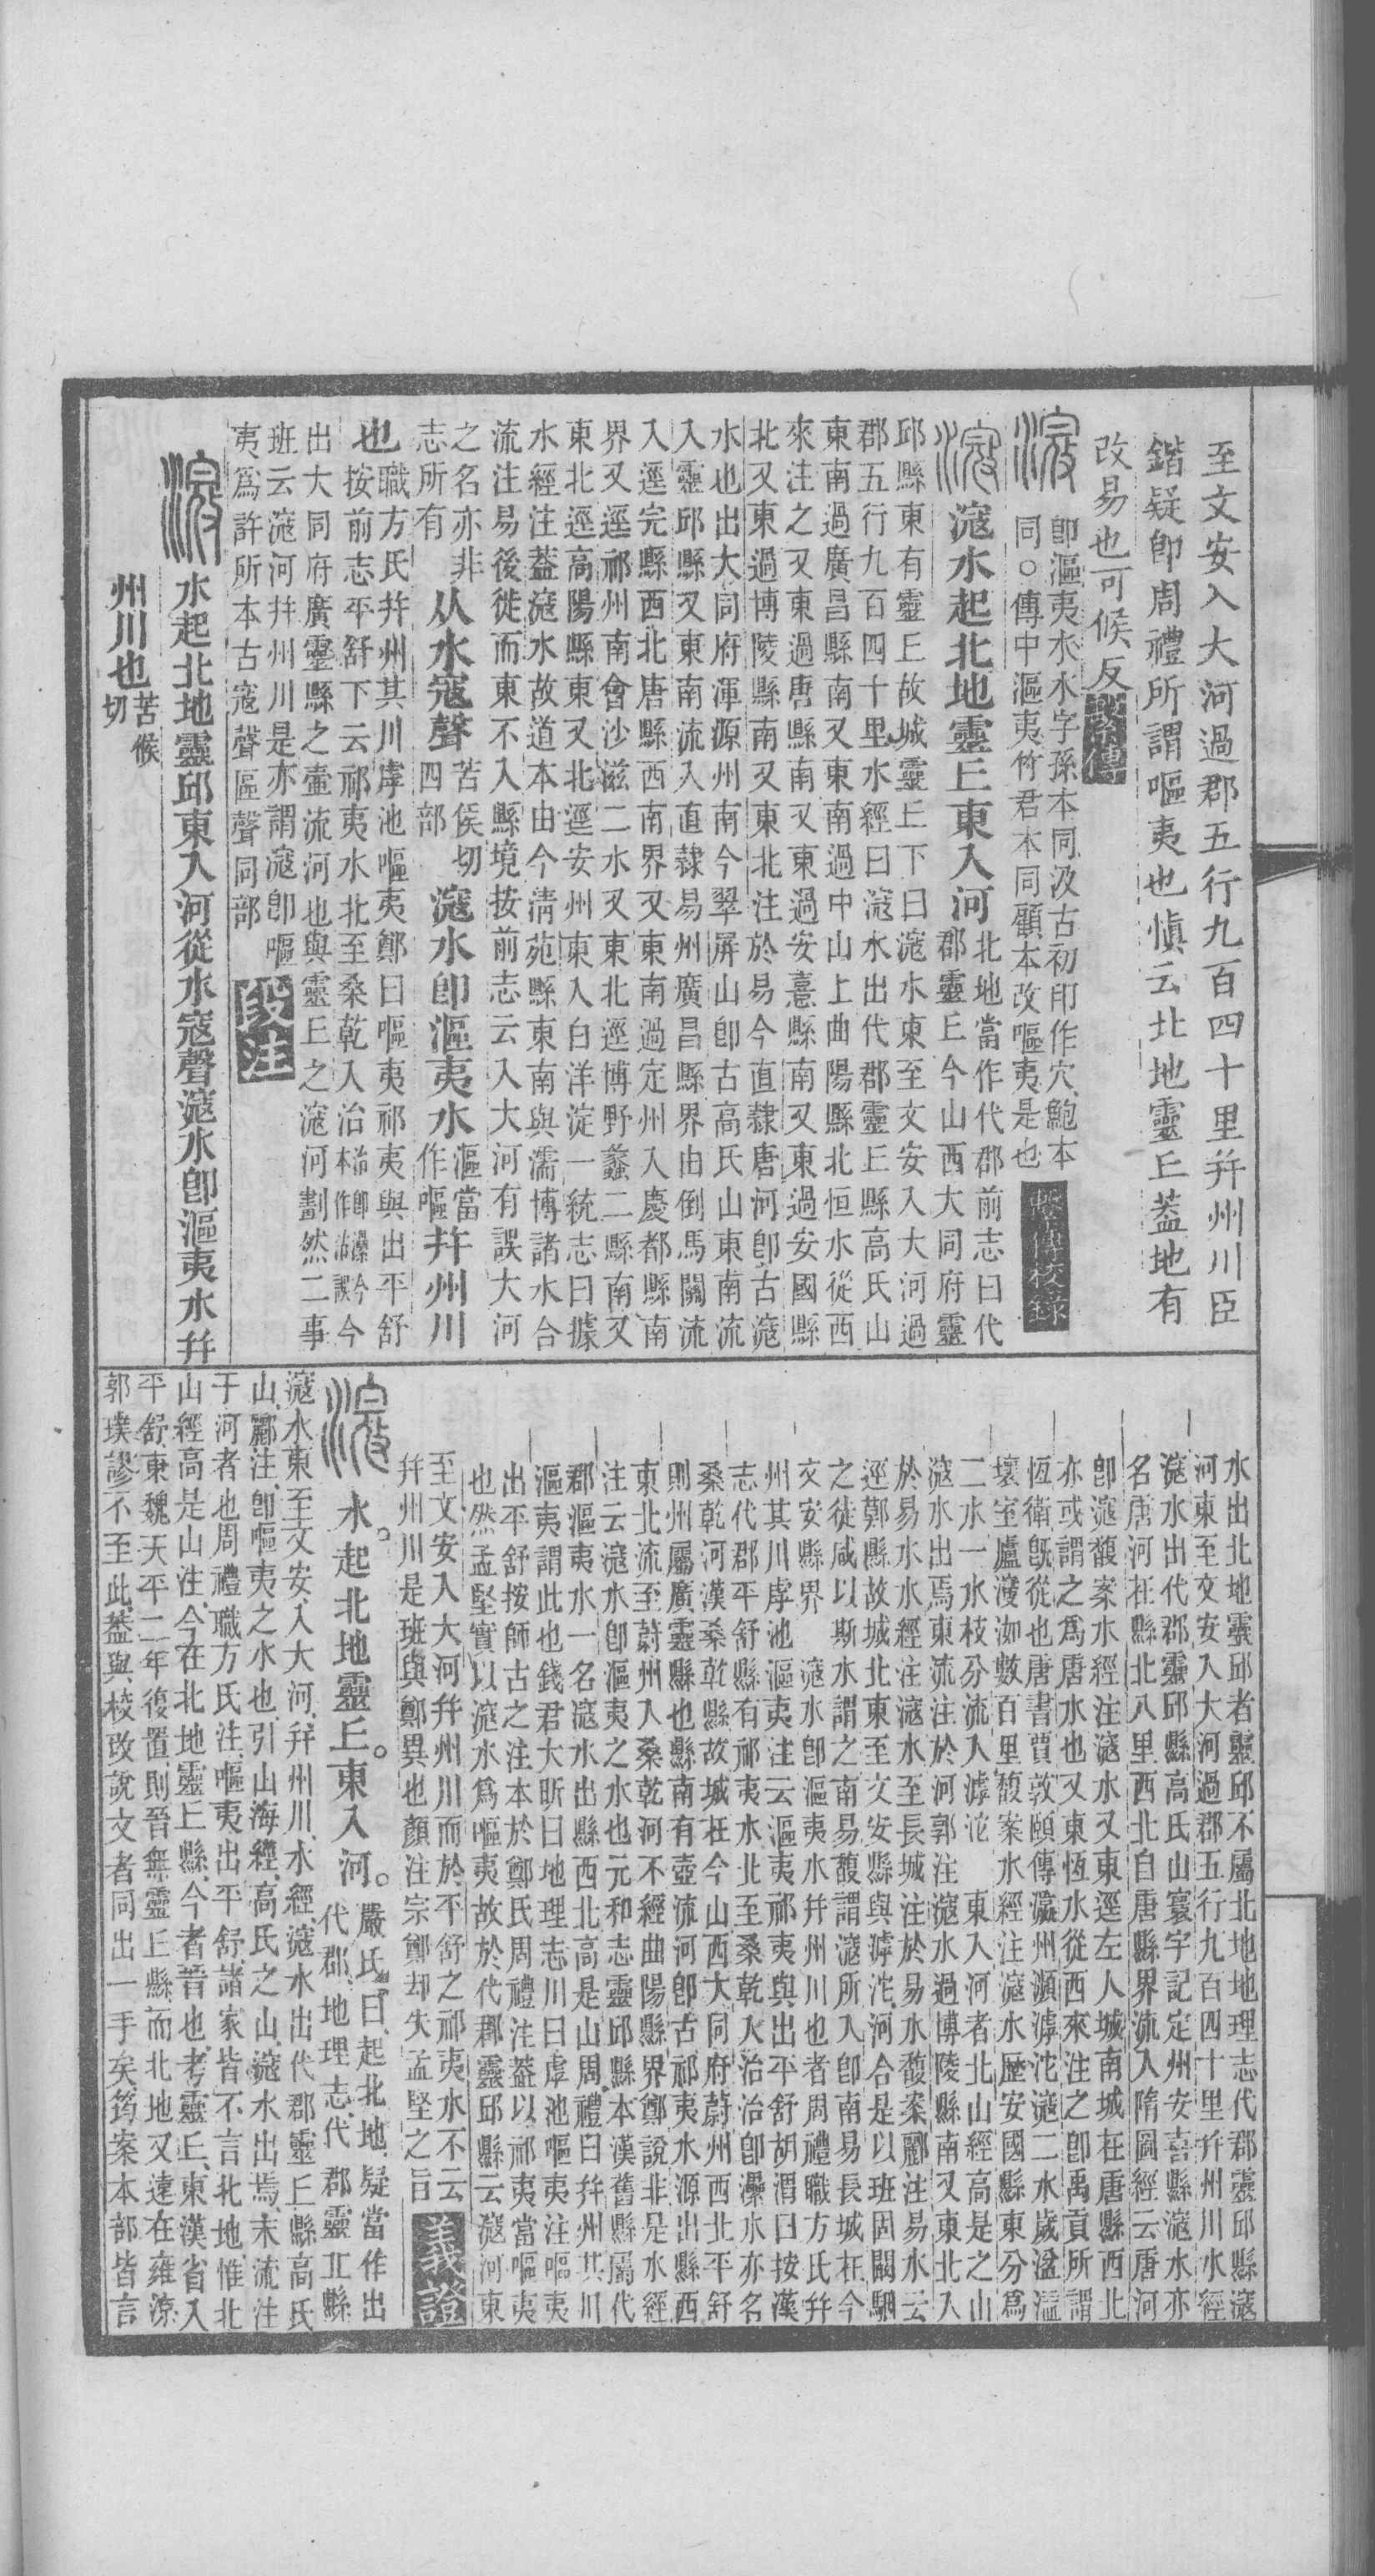 至文安入大河過郡五行九百四十里幷州川臣
鍇疑卽周禮所謂嘔夷也愼云北地靈丘蓋地有
改易也可候反 繫傳
滱 卽漚夷水水字孫本同汲古初印作穴鮑本
同○傳中漚夷竹君本同顧本改嘔夷是也 繫傳校錄
滱 滱水起北地靈丘東入河 北地當作代郡前志曰代
郡靈丘今山西大同府靈
邱縣東有靈丘故城靈丘下曰滱水東至文安入大河過
郡五行九百四十里水經曰滱水出代郡靈丘縣高氏山
東南過廣昌縣南又東南過中山上曲陽縣北恒水從西
來注之又東過唐縣南又東過安憙縣南又東過安國縣
北又東過博陵縣南又東北注於易今直隸唐河卽古滱
水也出大同府渾源州南今翠屏山卽古高氏山東南流
入靈邱縣又東南流入直隸易州廣昌縣界由倒馬關流
入逕完縣西北唐縣西南界又東南過定州入慶都縣南
界又逕祁州南會沙滋二水又東北逕博野蠡二縣南又
東北逕高陽縣東又北逕安州東入白洋淀一統志曰據
水經注蓋滱水故道本由今淸苑縣東南與濡博諸水合
流注易後徙而東不入縣境按前志云入大河有誤大河
之名亦非
志所有 从水寇聲 苦侯切
四部 滱水卽漚夷水 漚當
作嘔 幷州川
也 職方氏幷州其川虖池嘔夷鄭曰嘔夷祁夷與出平舒
按前志平舒下云祁夷水北至桑乾入治 治卽灅今
本作沽誤 今
出大同府廣靈縣之壷流河也與靈丘之滱河劃然二事
班云滱河幷州川是亦謂滱卽嘔
夷爲許所本古寇聲區聲同部 段注
滱 水起北地靈邱東入河從水寇聲滱水卽漚夷水幷
州川也 苦候
切
水出北地靈邱者靈邱不屬北地地理志代郡靈邱縣滱
河東至文安入大河過郡五行九百四十里幷州川水經
滱水出代郡靈邱縣高氏山寰宇記定州安喜縣滱水亦
名唐河在縣北八里西北自唐縣界流入隋圖經云唐河
卽滱馥案水經注滱水又東逕左人城南城在唐縣西北
亦或謂之爲唐水也又東恆水從西來注之卽禹貢所謂
恆衛旣從也唐書賈敦頤傳瀛州瀕滹沱滱二水歲湓溢
壞室廬寖洳數百里馥案水經注滱水歷安國縣東分爲
二水一水枝分流入滹沱 東入河者北山經高是之山
滱水出焉東流注於河郭注滱水過博陵縣南又東北入
於易水水經注滱水至長城注於易水馥案酈注易水云
逕鄚縣故城北東至文安縣與滹沱河合是以班固闞駰
之徒咸以斯水謂之南易馥謂滱所入卽南易長城在今
文安縣界 滱水卽漚夷水幷州川也者周禮職方氏幷
州其川虖池漚夷注云漚夷祁夷與出平舒胡渭曰按漢
志代郡平舒縣有祁夷水北至桑乾入治治卽灅水亦名
桑乾河漢桑乾縣故城在今山西大同府蔚州西北平舒
則州屬廣靈縣也縣南有壺流河卽古祁夷水源出縣西
東北流至蔚州入桑乾河不經曲陽縣界鄭說非是水經
注云滱水卽漚夷之水也元和志靈邱縣本漢舊縣屬代
郡漚夷水一名滱水出縣西北高是山周禮曰幷州其川
漚夷謂此也錢君大昕曰地理志川曰虖池嘔夷注嘔夷
出平舒按師古之注本於鄭氏周禮注蓋以祁夷當嘔夷
也然孟堅實以滱水爲嘔夷故於代郡靈邱縣云滱河東
至文安入大河幷州川而於平舒之祁夷水不云
幷州川是班與鄭異也顏注宗鄭却失孟堅之旨 義證
滱 水。起北地靈丘。東入河。 嚴氏曰、起北地、疑當作出
代郡、地理志、代郡靈丘縣
滱水東至文安入大河、幷州川、水經、滱水出代郡靈丘縣高氏
山、酈注、卽嘔夷之水也、引山海經、高氏之山、滱水出焉、末流注
于河者也、周禮職方氏注、嘔夷出平舒、諸家皆不言北地、惟北
山經高是山注、今在北地靈丘縣、今者晉也、考靈丘、東漢省入
平舒、東魏天平二年復置、則晉無靈丘縣、而北地又遠在雍涼
郭璞謬不至此、蓋與校改說文者同出一手矣筠案本部皆言